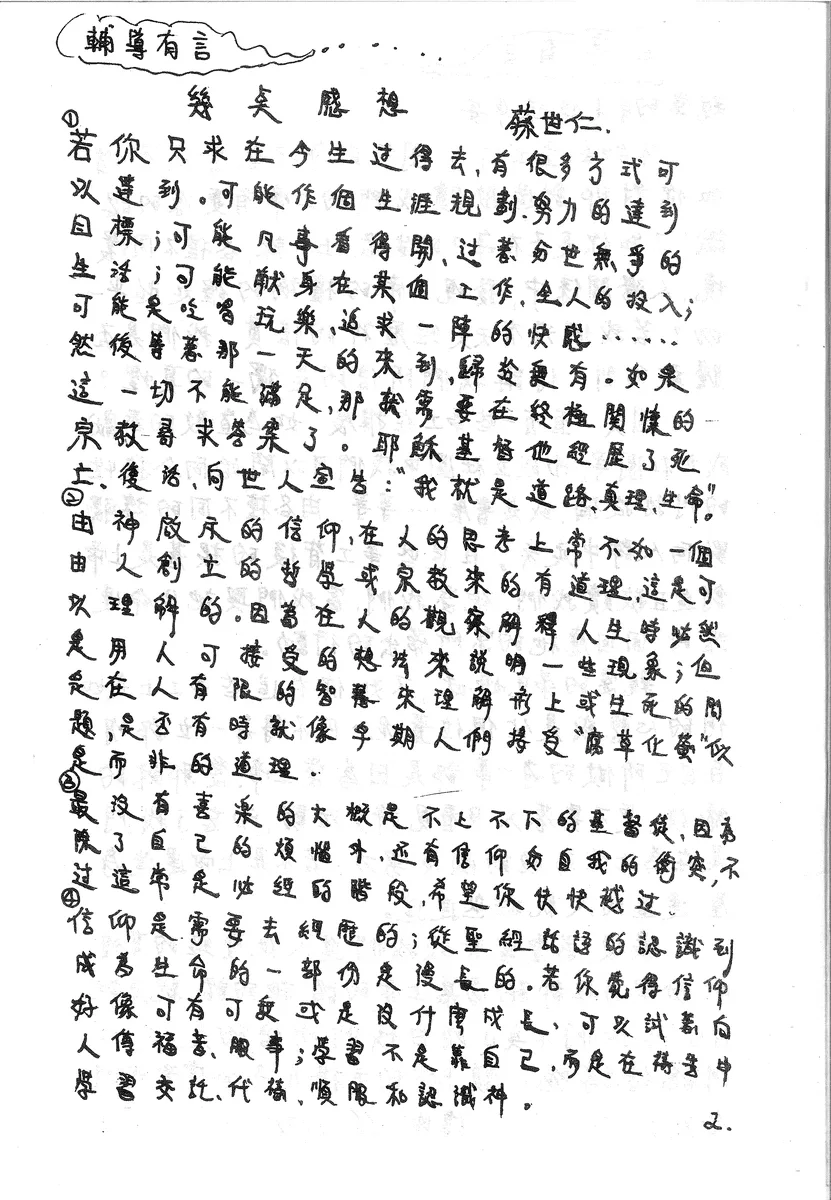 輔導有言
幾點感想
蘇世仁.
①
若你只求在今生过得去,有很多方式可
以達到。可能作個生涯規劃、努力的達到
目標;可能凡事看得開,过著与世無爭的
生活;可能献身在某個工作,全人的投入;
可能是吃喝玩樂,追求一陣的快感……
然後等著那一天的來到,歸於更有。如果
這一切不能滿足,那就需要在終極関懷的
宗教尋求答案了。耶穌基督他經歷了死
亡、復活,向世人宣告:"我就是道路、真理、生命"。
②
由神啟示的信仰,在人的思考上常不如一個
由人創立的哲學或宗教來的有道理,這是可
以理解的。因為在人的觀察解釋人生時必然
是用人可接受的想法來說明一些現象;但
是在人有限的智慧來理解形上或生死的問
題,是否有時就像早期人們接受"腐草化螢"似
是而非的道理.
③
最沒有喜樂的大概是不上不下的基督徒,因為
除了自己的煩惱外,还有信仰与自我的衝突,不
过這常是必經的階段,希望你快快越过.
④
信仰是需要去經歷的;從聖經話語的認識到
成為生命的一部份是漫長的。若你覺得信仰
好像可有可無或是沒什麼成長,可以試著向
人傳福音、服事;學習不是靠自己,而是在禱告中
學習交託、代禱、順服和認識神。
2.